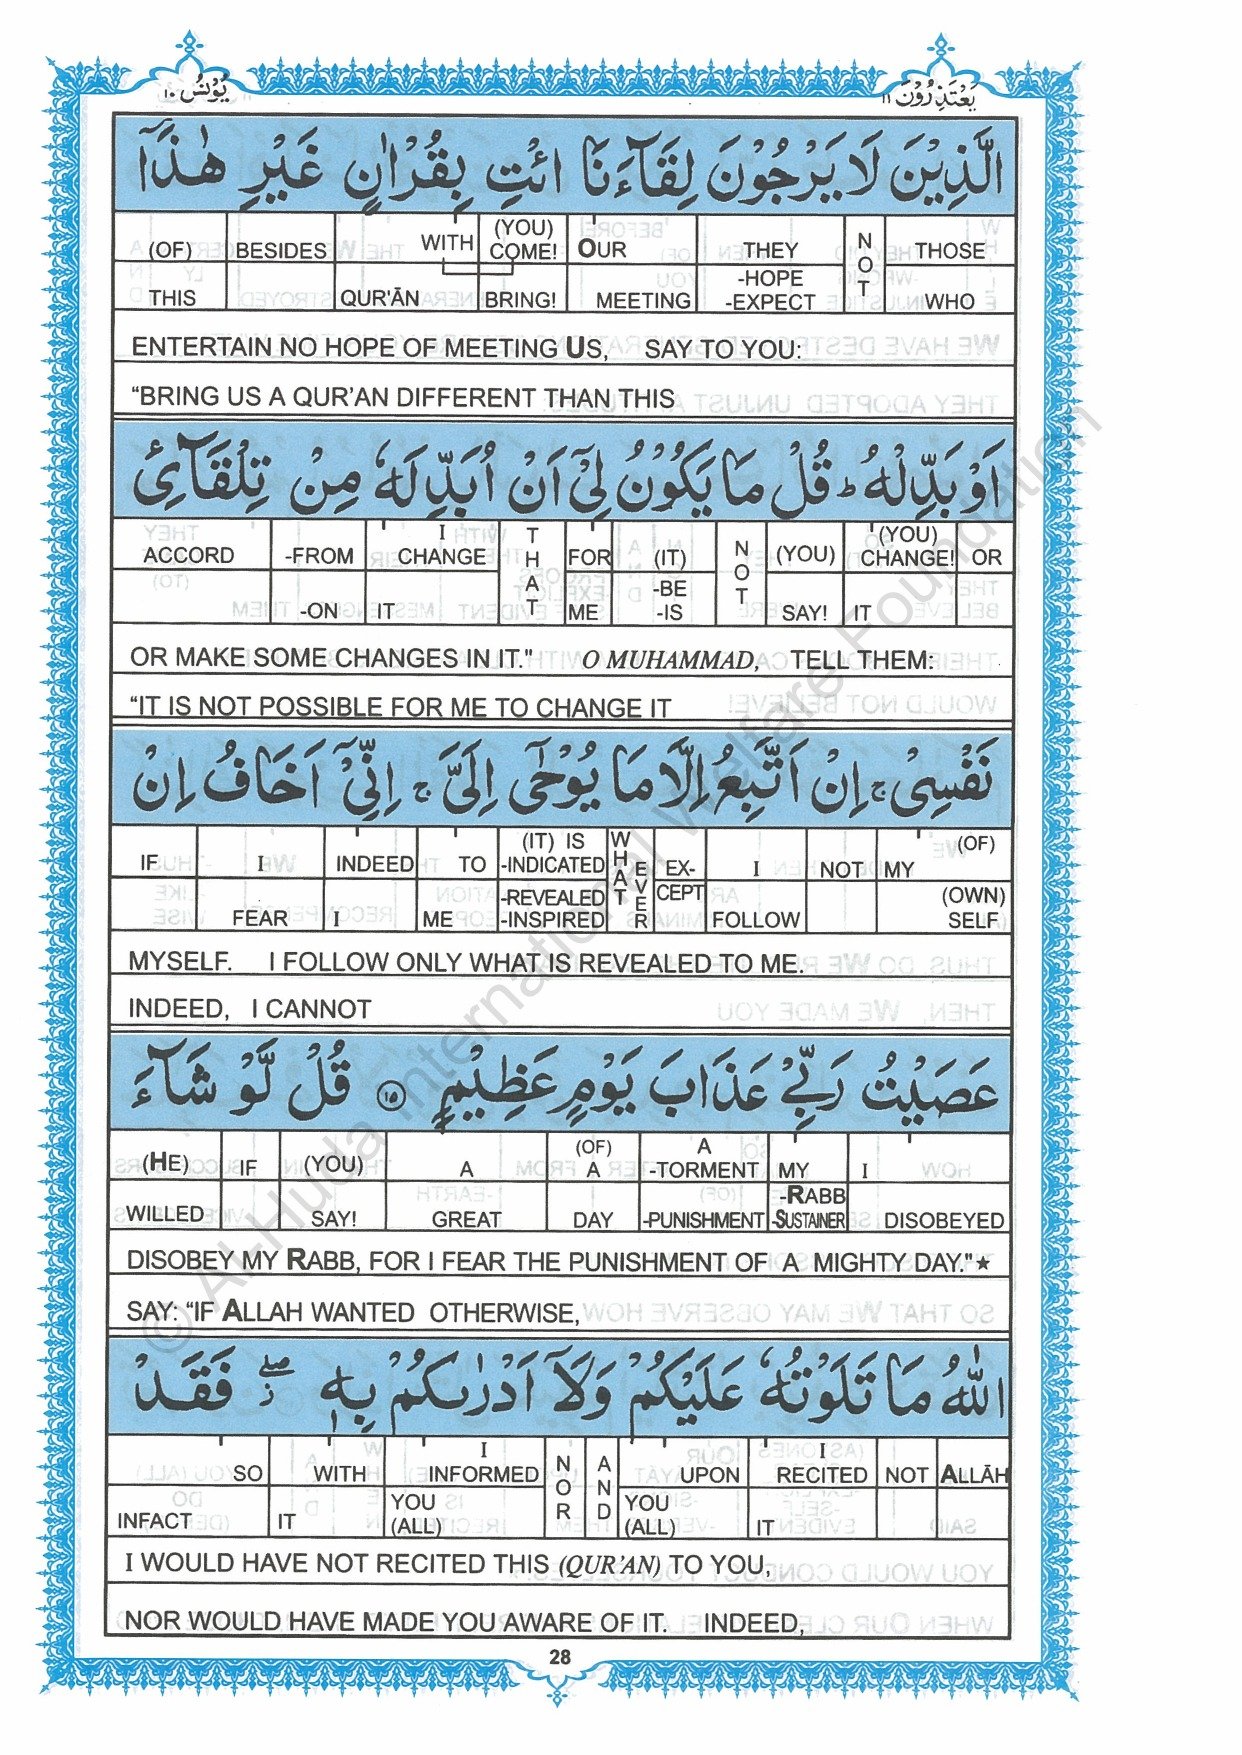 يَعْتَذِرُوْنَ ١١
يُوْنُسُ ١٠
الَّذِيْنَ لَا يَرْجُوْنَ لِقَآءَنَا ائْتِ بِقُرْاٰنٍ غَيْرِ هٰذَآ
(OF) THIS | BESIDES | WITH QUR'ĀN | (YOU) COME! BRING! | OUR MEETING | THEY -HOPE -EXPECT | NOT | THOSE WHO
ENTERTAIN NO HOPE OF MEETING US, SAY TO YOU:
“BRING US A QUR’AN DIFFERENT THAN THIS
اَوْ بَدِّلْهُ ؕ قُلْ مَا يَكُوْنُ لِيْٓ اَنْ اُبَدِّلَهٗ مِنْ تِلْقَآئِ
ACCORD | -FROM -ON | I CHANGE IT | THAT | FOR ME | (IT) -BE -IS | NOT | (YOU) SAY! | (YOU) CHANGE! IT | OR
OR MAKE SOME CHANGES IN IT." O MUHAMMAD, TELL THEM:
“IT IS NOT POSSIBLE FOR ME TO CHANGE IT
نَفْسِيْ ۚ اِنْ اَتَّبِعُ اِلَّا مَا يُوْحٰٓى اِلَيَّ ۚ اِنِّيْٓ اَخَافُ اِنْ
IF | I FEAR | INDEED I | TO ME | (IT) IS -INDICATED -REVEALED -INSPIRED | WHATEVER | EX-CEPT | I FOLLOW | NOT | MY (OF) (OWN) SELF
MYSELF. I FOLLOW ONLY WHAT IS REVEALED TO ME.
INDEED, I CANNOT
عَصَيْتُ رَبِّيْ عَذَابَ يَوْمٍ عَظِيْمٍ ١٥ قُلْ لَّوْ شَآءَ
(HE) WILLED | IF | (YOU) SAY! | A GREAT | (OF) A DAY | A -TORMENT -PUNISHMENT | MY -RABB -SUSTAINER | I DISOBEYED
DISOBEY MY RABB, FOR I FEAR THE PUNISHMENT OF A MIGHTY DAY."★
SAY: “IF ALLAH WANTED OTHERWISE,
اللّٰهُ مَا تَلَوْتُهٗ عَلَيْكُمْ وَلَآ اَدْرٰىكُمْ بِهٖ ۖ فَقَدْ
SO INFACT | WITH IT | I INFORMED YOU (ALL) | NOR | AND | UPON YOU (ALL) | I RECITED IT | NOT | ALLĀH
I WOULD HAVE NOT RECITED THIS (QUR’AN) TO YOU,
NOR WOULD HAVE MADE YOU AWARE OF IT. INDEED,
28
© Al-Huda International Welfare Foundation